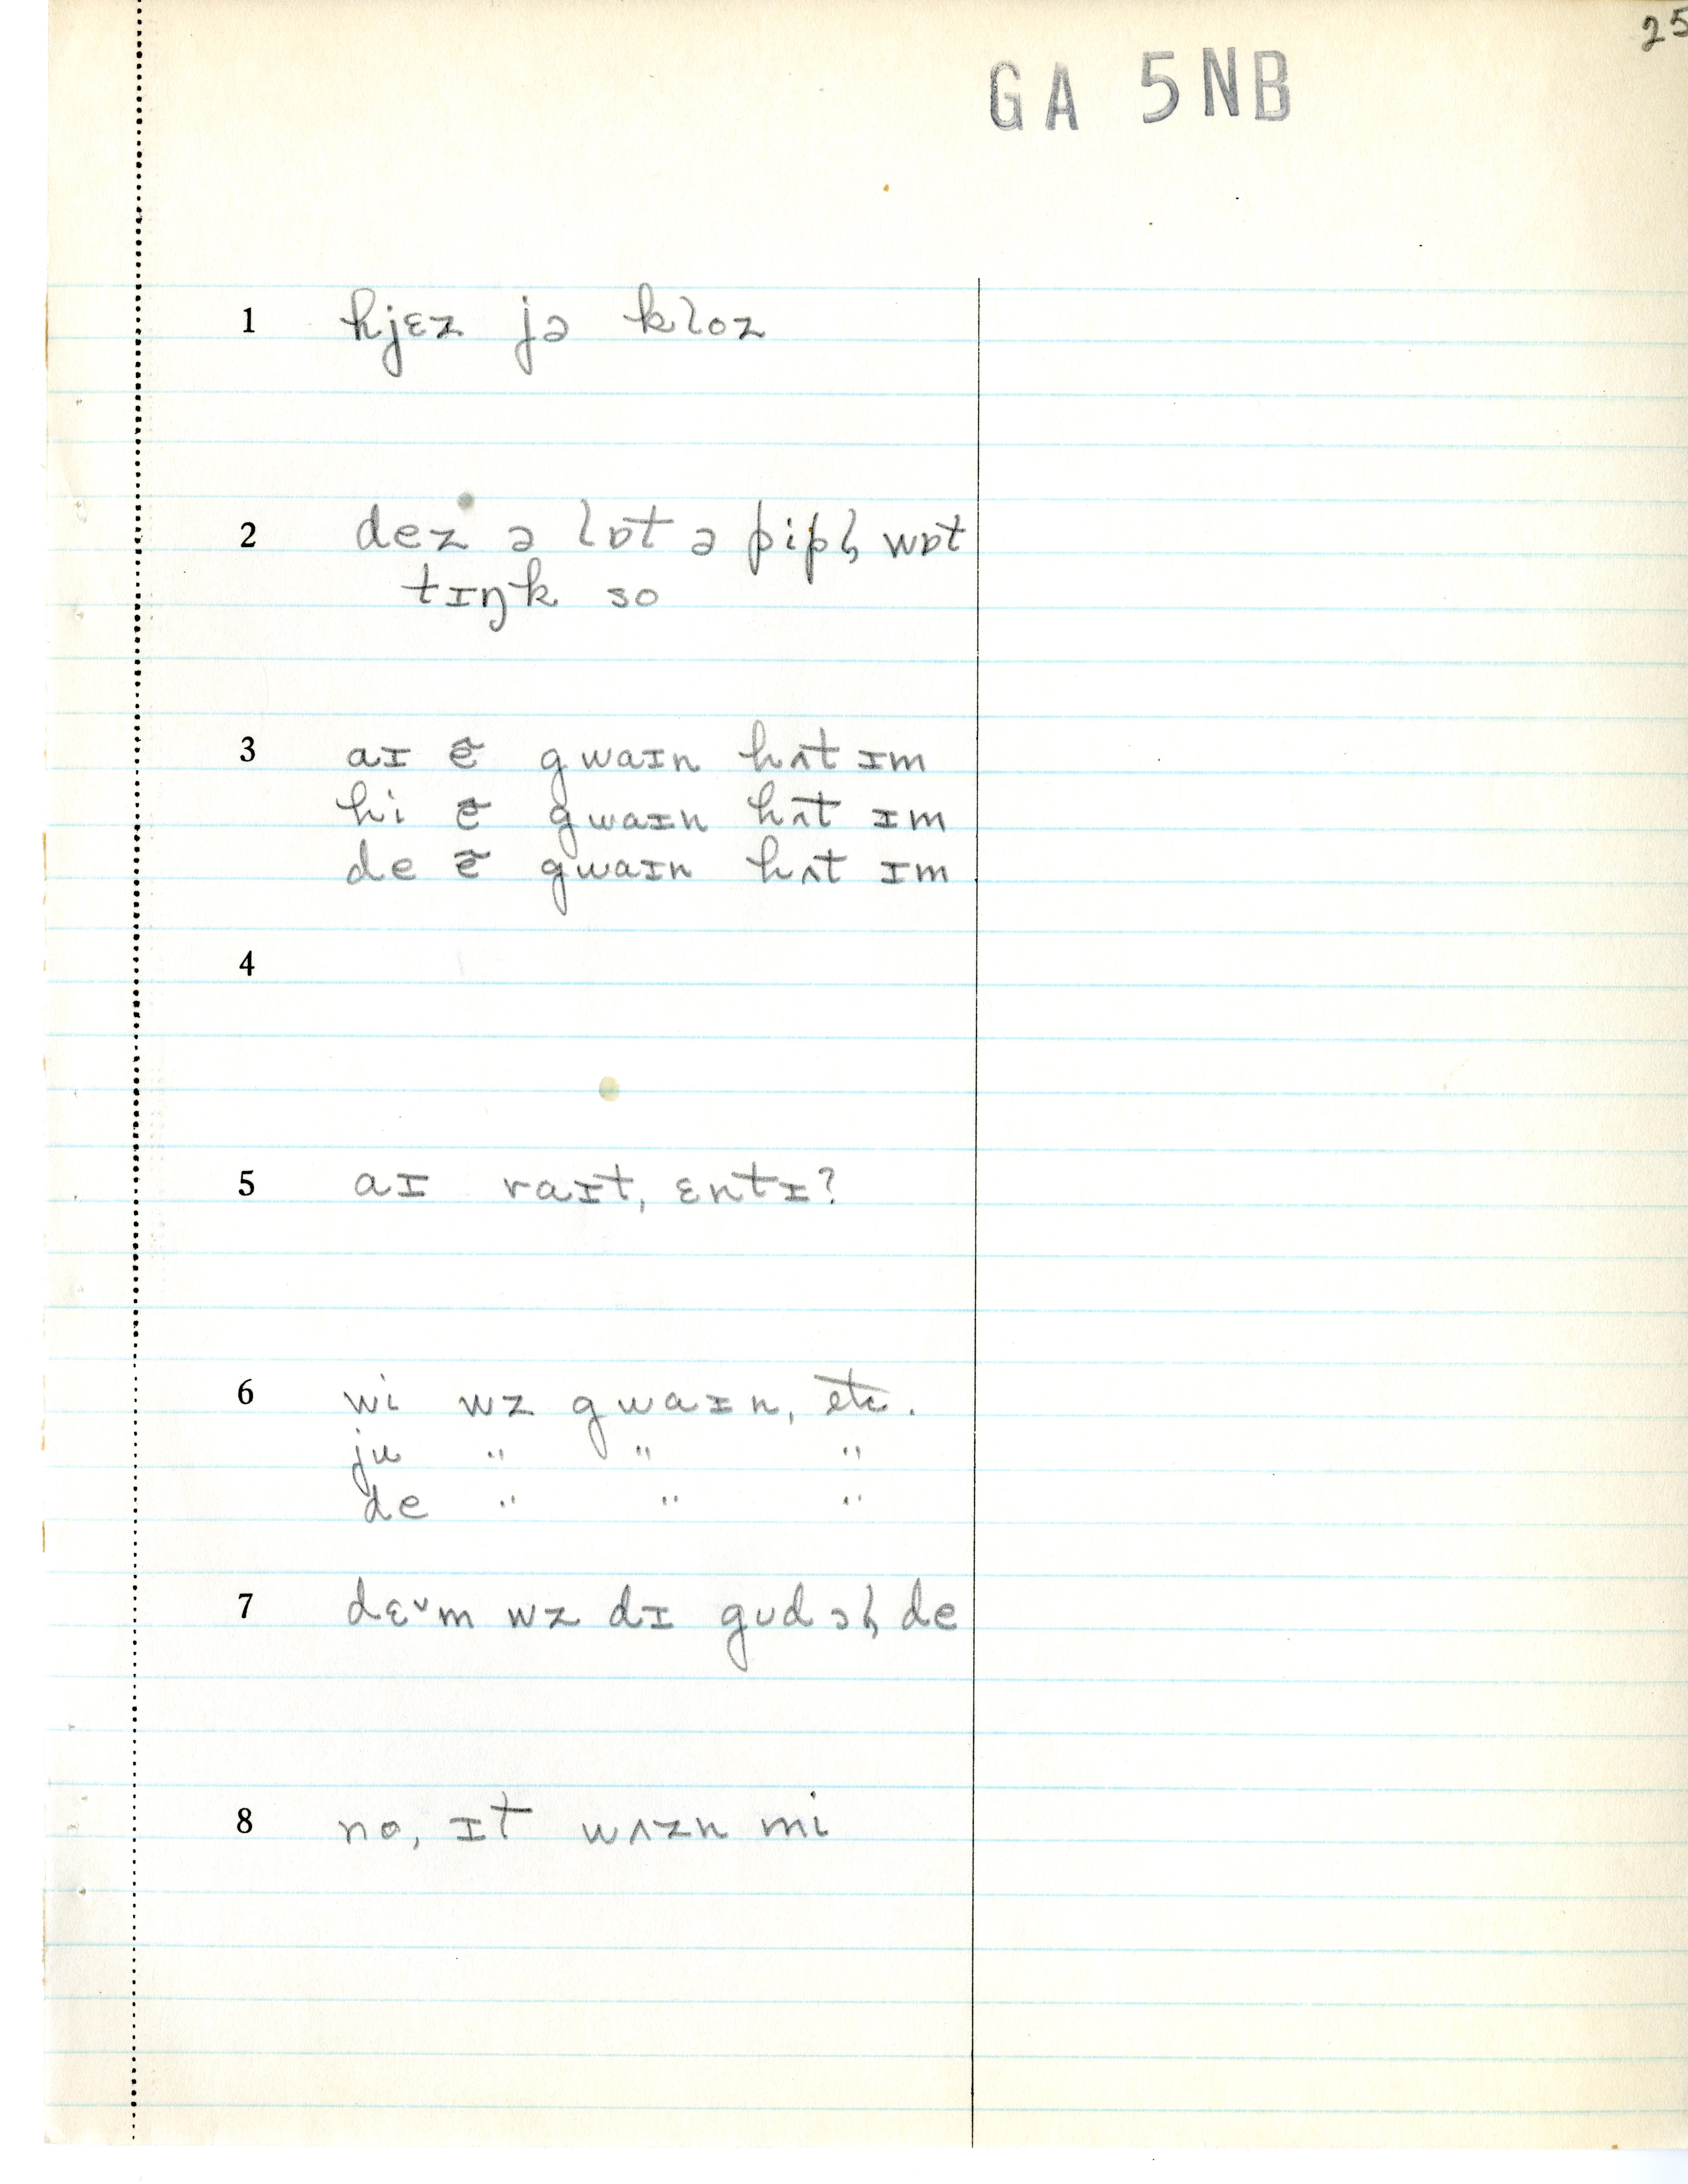 25
GA 5NB
1 hjɛz jə kloz
2 dez ə lɒt ə pipl̩ wɒt
tɪŋk so
3 aɪ ẽ gwaɪn hʌt ɪm
hi ẽ gwaɪn hʌt ɪm
de ẽ gwaɪn hʌt ɪm
4
5 aɪ raɪt, ɛntɪ?
6 wi wz gwaɪn, etc.
ju " " "
de " " "
7 dɛ˅m wz dɪ gʊdəl̩ de
8 no, ɪt wʌzn mi